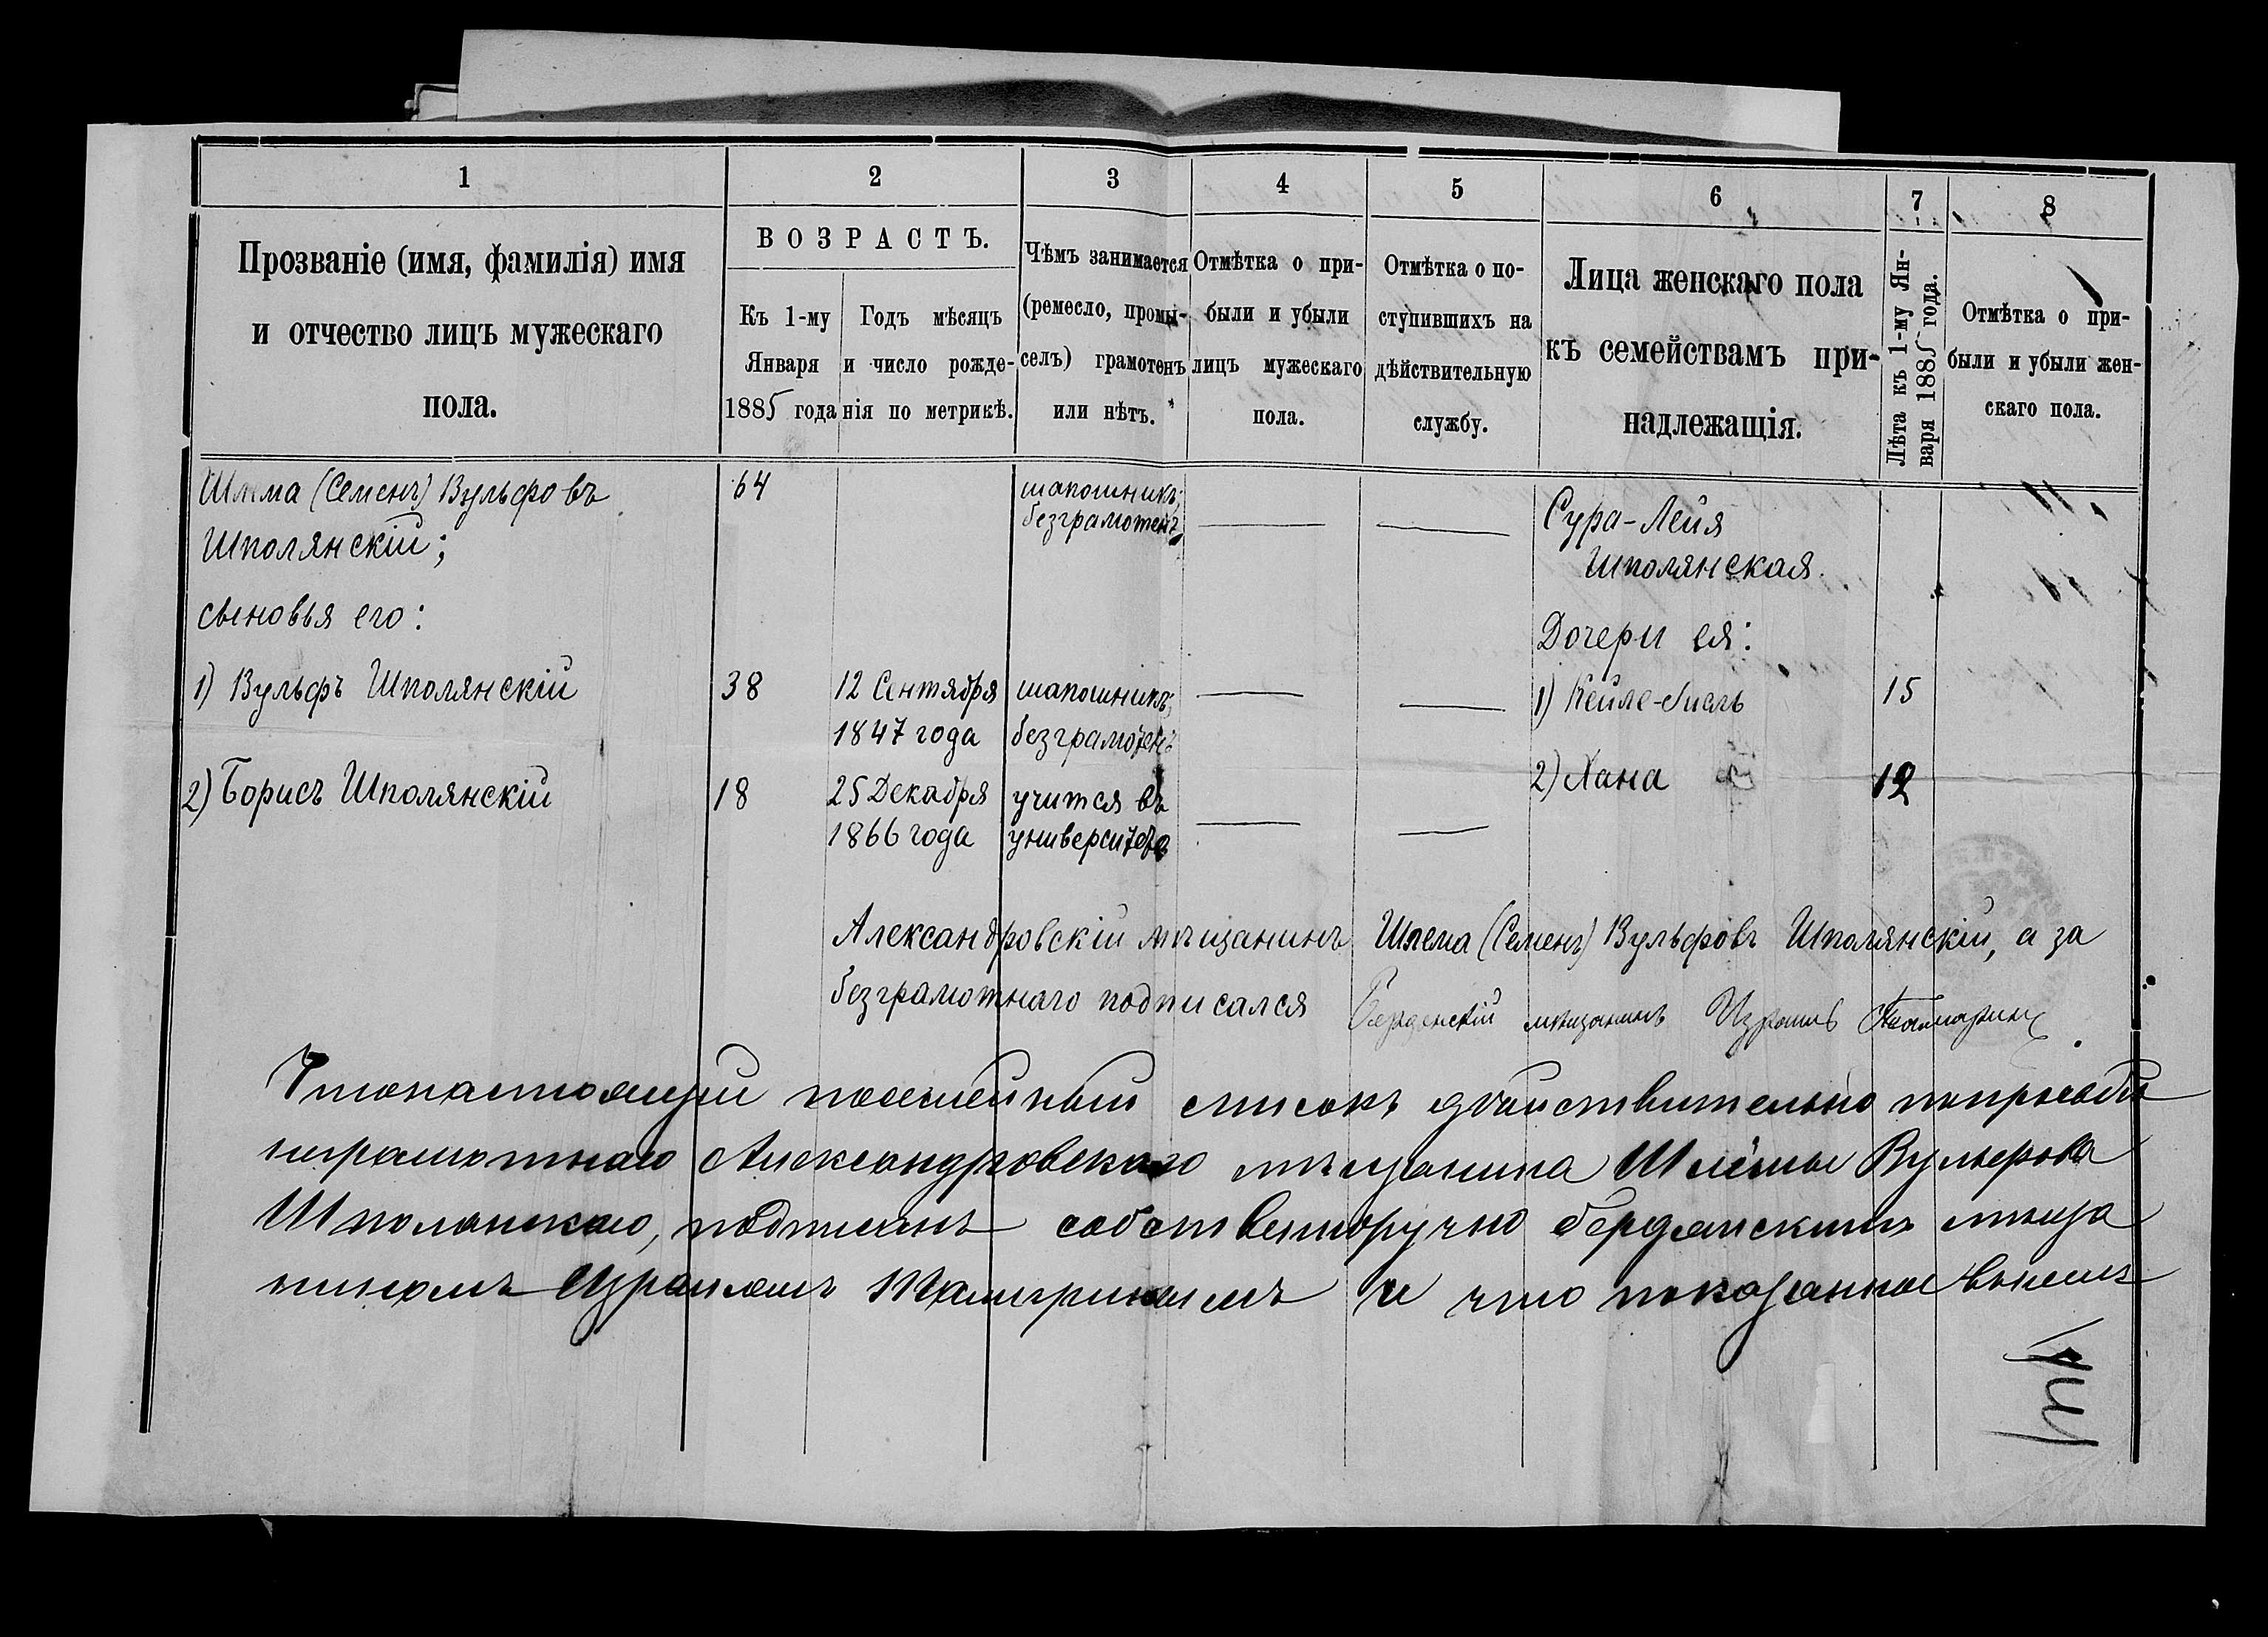 1 2 3 4 5 6 7 8
Прозваніе (имя, фамилія) имя
и отчество лицъ мужескаго
пола.
ВОЗРАСТЪ.
Къ 1-му
Января
1885 года
Годъ мѣсяцъ
и число рожде-
нія по метрикѣ.
Чѣмъ занимается
(ремесло, промы-
селъ) грамотенъ
или нѣтъ.
Отмѣтка о при-
были и убыли
лицъ мужескаго
пола.
Отмѣтка о по-
ступившихъ на
дѣйствительную
службу.
Лица женскаго пола
къ семействамъ при-
надлежащія.
Лѣта къ 1-му Ян-
варя 1885 года.
Отмѣтка о при-
были и убыли жен-
скаго пола.
Шлема (Семенъ) Вульфовъ
Шполянскій;
64
шапошникъ;
безграмотенъ
Сура-Лейя
Шполянская.
сыновья его:
Дочери ея:
1) Вульфъ Шполянскій
38
12 Сентября
1847 года
шапошникъ,
безграмотенъ
1) Кейле-
15
2) Борисъ Шполянскій
18
25 Декабря
1866 года
учится въ
университетѣ
2) Хана
12
Александровскій мѣщанинъ Шлема (Семенъ) Вульфовъ Шполянскій, а за
безграмотнаго подписался мѣщанинъ Израиль
Что настоящій посемейный списокъ дѣйствительно по просьбѣ
неграмотнаго Александровскаго мѣщанина Шлёмы Вульфова
Шполянскаго, подписанъ собственноручно бердянскимъ мѣща
ниномъ Израилемъ и что показанное въ немъ